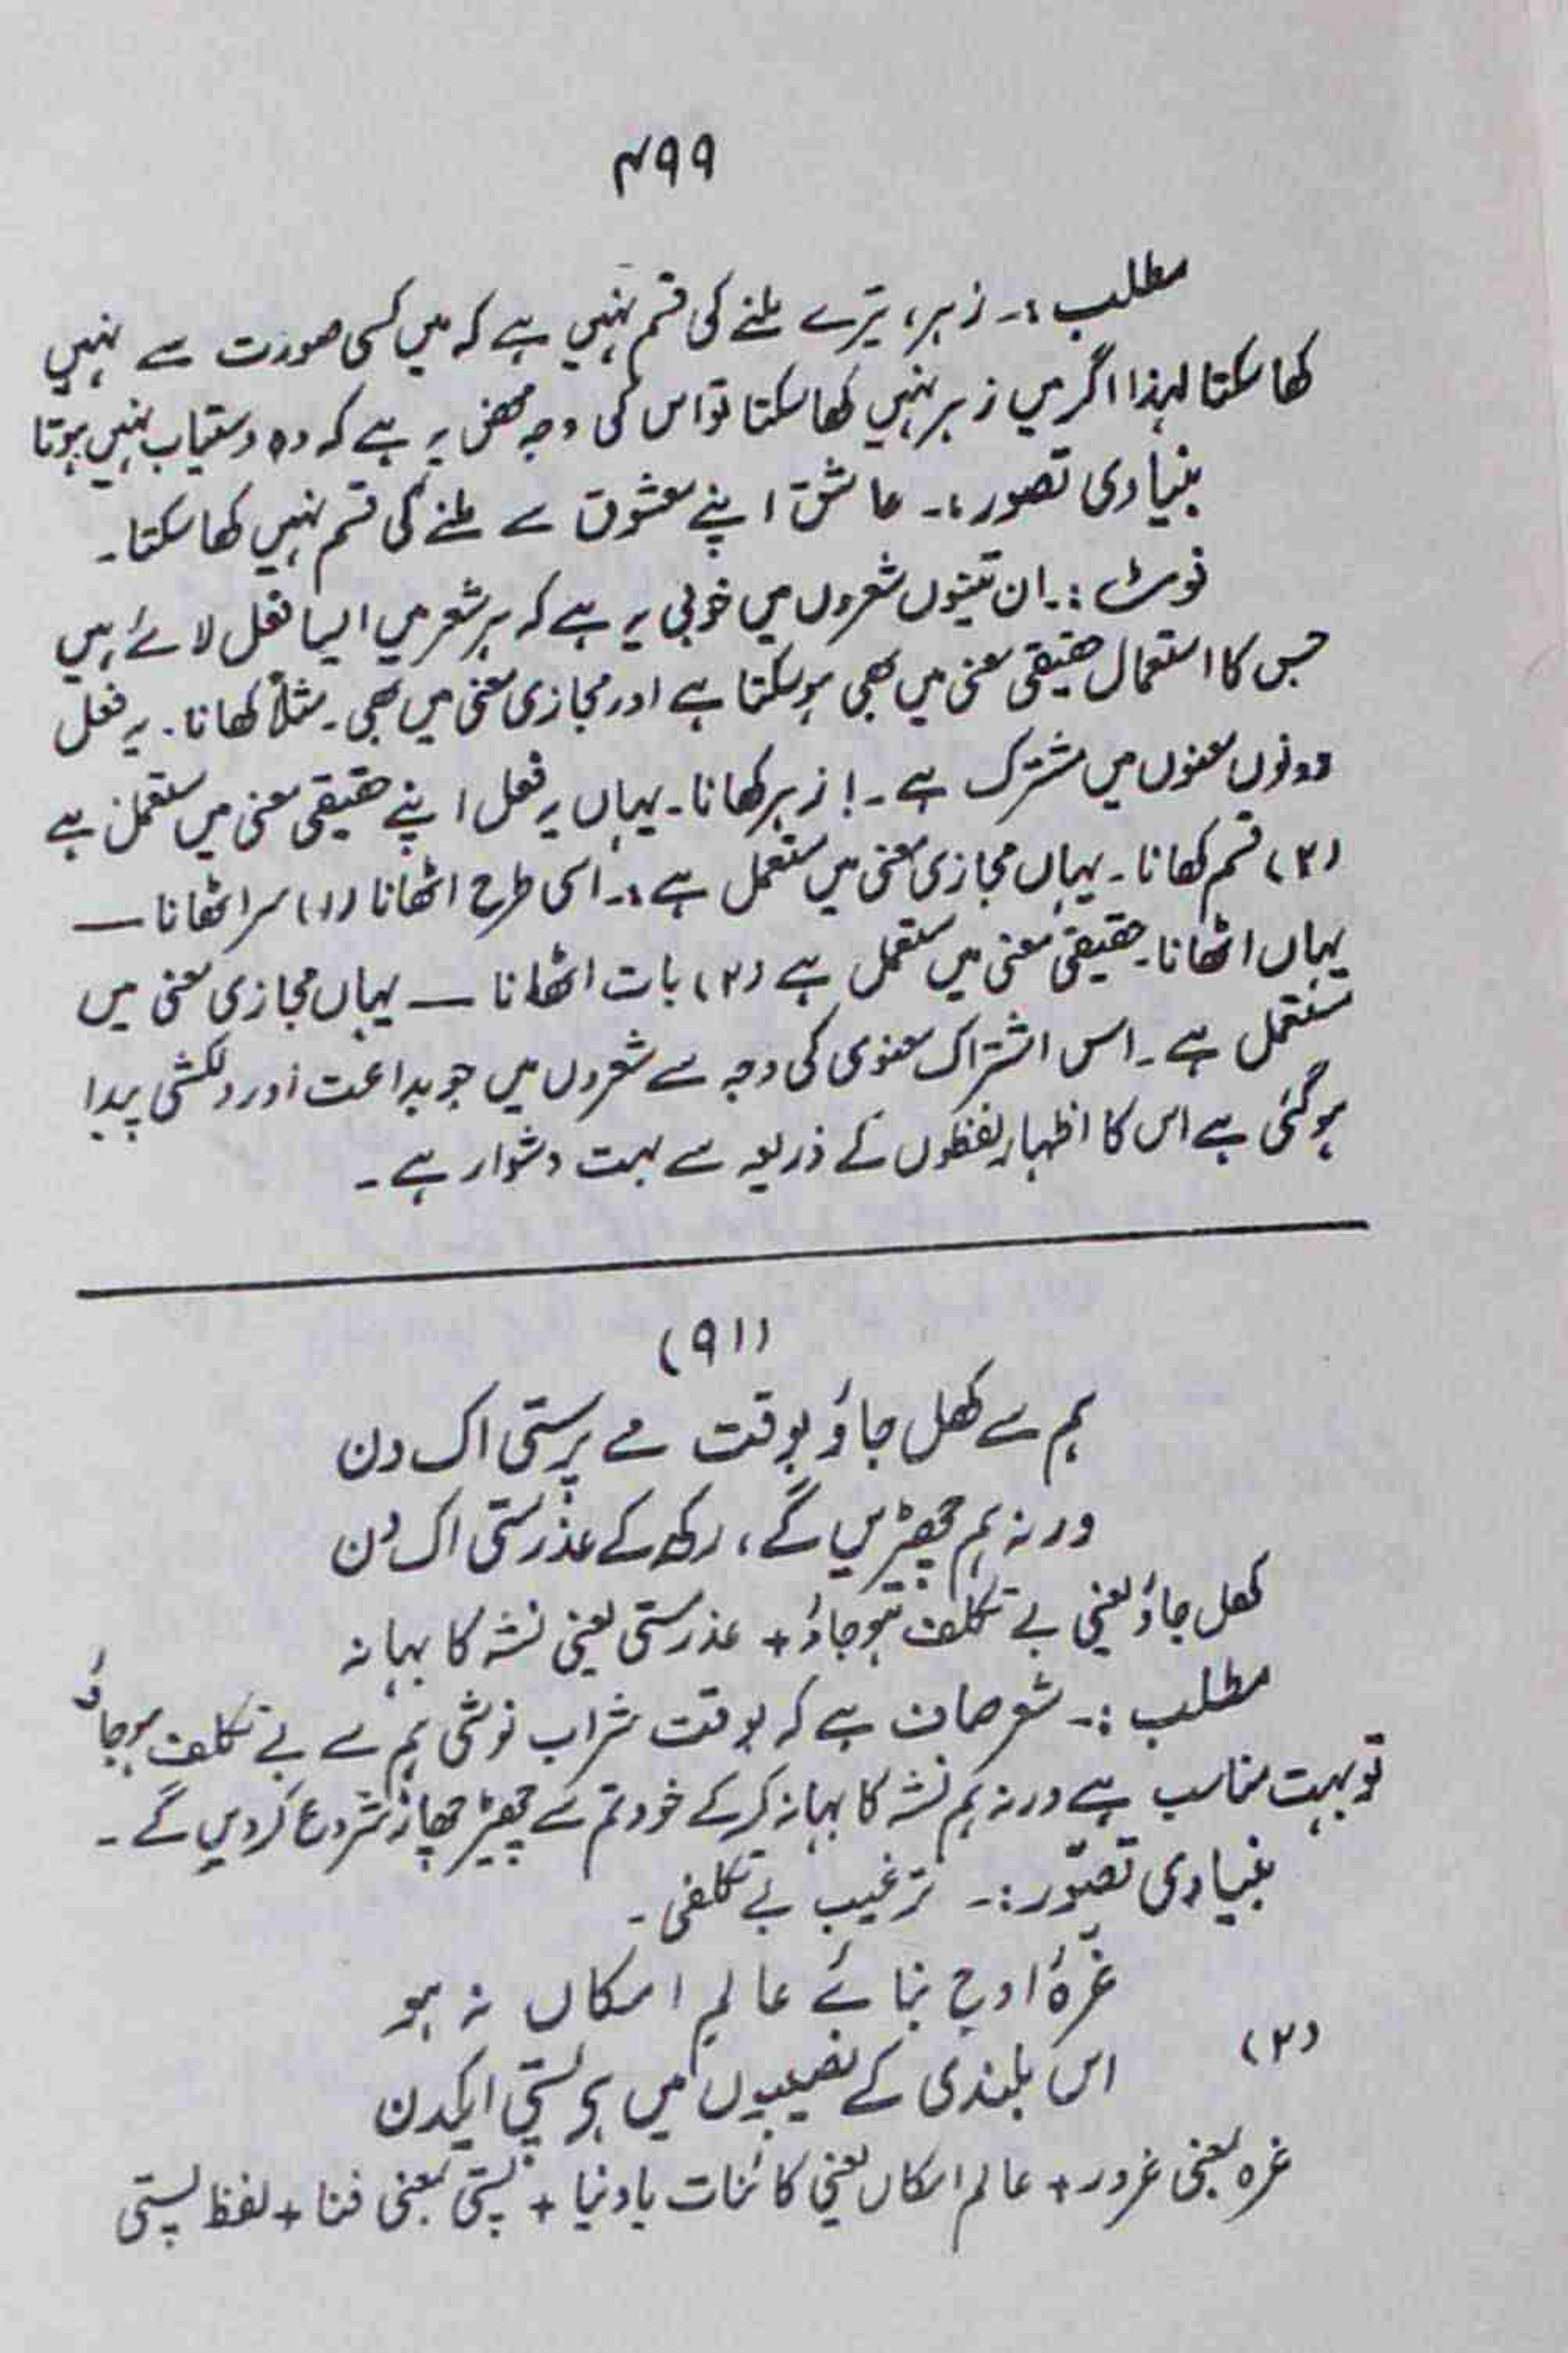 ۴۹۹
مطلب :۔ زہر، تیرے ملنے کی قسم نہیں ہے کہ میں کسی صورت سے نہیں
کھا سکتا لہذا اگر میں زہر نہیں کھا سکتا تو اس کی وجہ محض یہ ہے کہ وہ دستیاب نہیں ہوتا
بنیادی تصور :۔ عاشق اپنے معشوق سے ملنے کی قسم نہیں کھا سکتا۔
نوٹ :۔ ان تینوں شعروں میں خوبی یہ ہے کہ ہر شعر میں ایسا فعل لائے ہیں
جس کا استعمال حقیقی معنی میں بھی ہو سکتا ہے اور مجازی معنی میں بھی۔ مثلاً کھانا۔ یہ فعل
دونوں معنوں میں مشترک ہے۔ ! زہر کھانا۔ یہاں یہ فعل اپنے حقیقی معنی میں مستعمل ہے
(۲) قسم کھانا۔ یہاں مجازی معنی میں مستعمل ہے :۔ اسی طرح اٹھانا (۱) سر اٹھانا —
یہاں اٹھانا۔ حقیقی معنی میں مستعمل ہے (۲) بات اٹھانا — یہاں مجازی معنی میں
مستعمل ہے۔ اس اشتراک معنوی کی وجہ سے شعروں میں جو بداعت اور دلکشی پیدا
ہو گئی ہے اس کا اظہار لفظوں کے ذریعہ سے بہت دشوار ہے۔
(۹۱)
ہم سے کھل جاؤ بوقت مے پرستی اک دن
ورنہ ہم چھیڑیں گے، رکھ کے عذر مستی اک دن
کھل جاؤ یعنی بے تکلف ہو جاؤ + عذر مستی یعنی نشہ کا بہانہ
مطلب :۔ شعر صاف ہے کہ بوقت شراب نوشی ہم سے بے تکلف ہو جاؤ
تو بہت مناسب ہے ورنہ ہم نشہ کا بہانہ کر کے خود تم سے چھیڑ چھاڑ شروع کر دیں گے۔
بنیادی تصوّر :۔ ترغیب بے تکلفی۔
غرّۂ اوج بنائے عالم امکاں نہ ہو
(۲)
اس بلندی کے نصیبوں میں ہے پستی ایکدن
غرہ بمعنی غرور + عالم امکاں یعنی کائنات یا دنیا + پستی بمعنی فنا + لفظ پستی